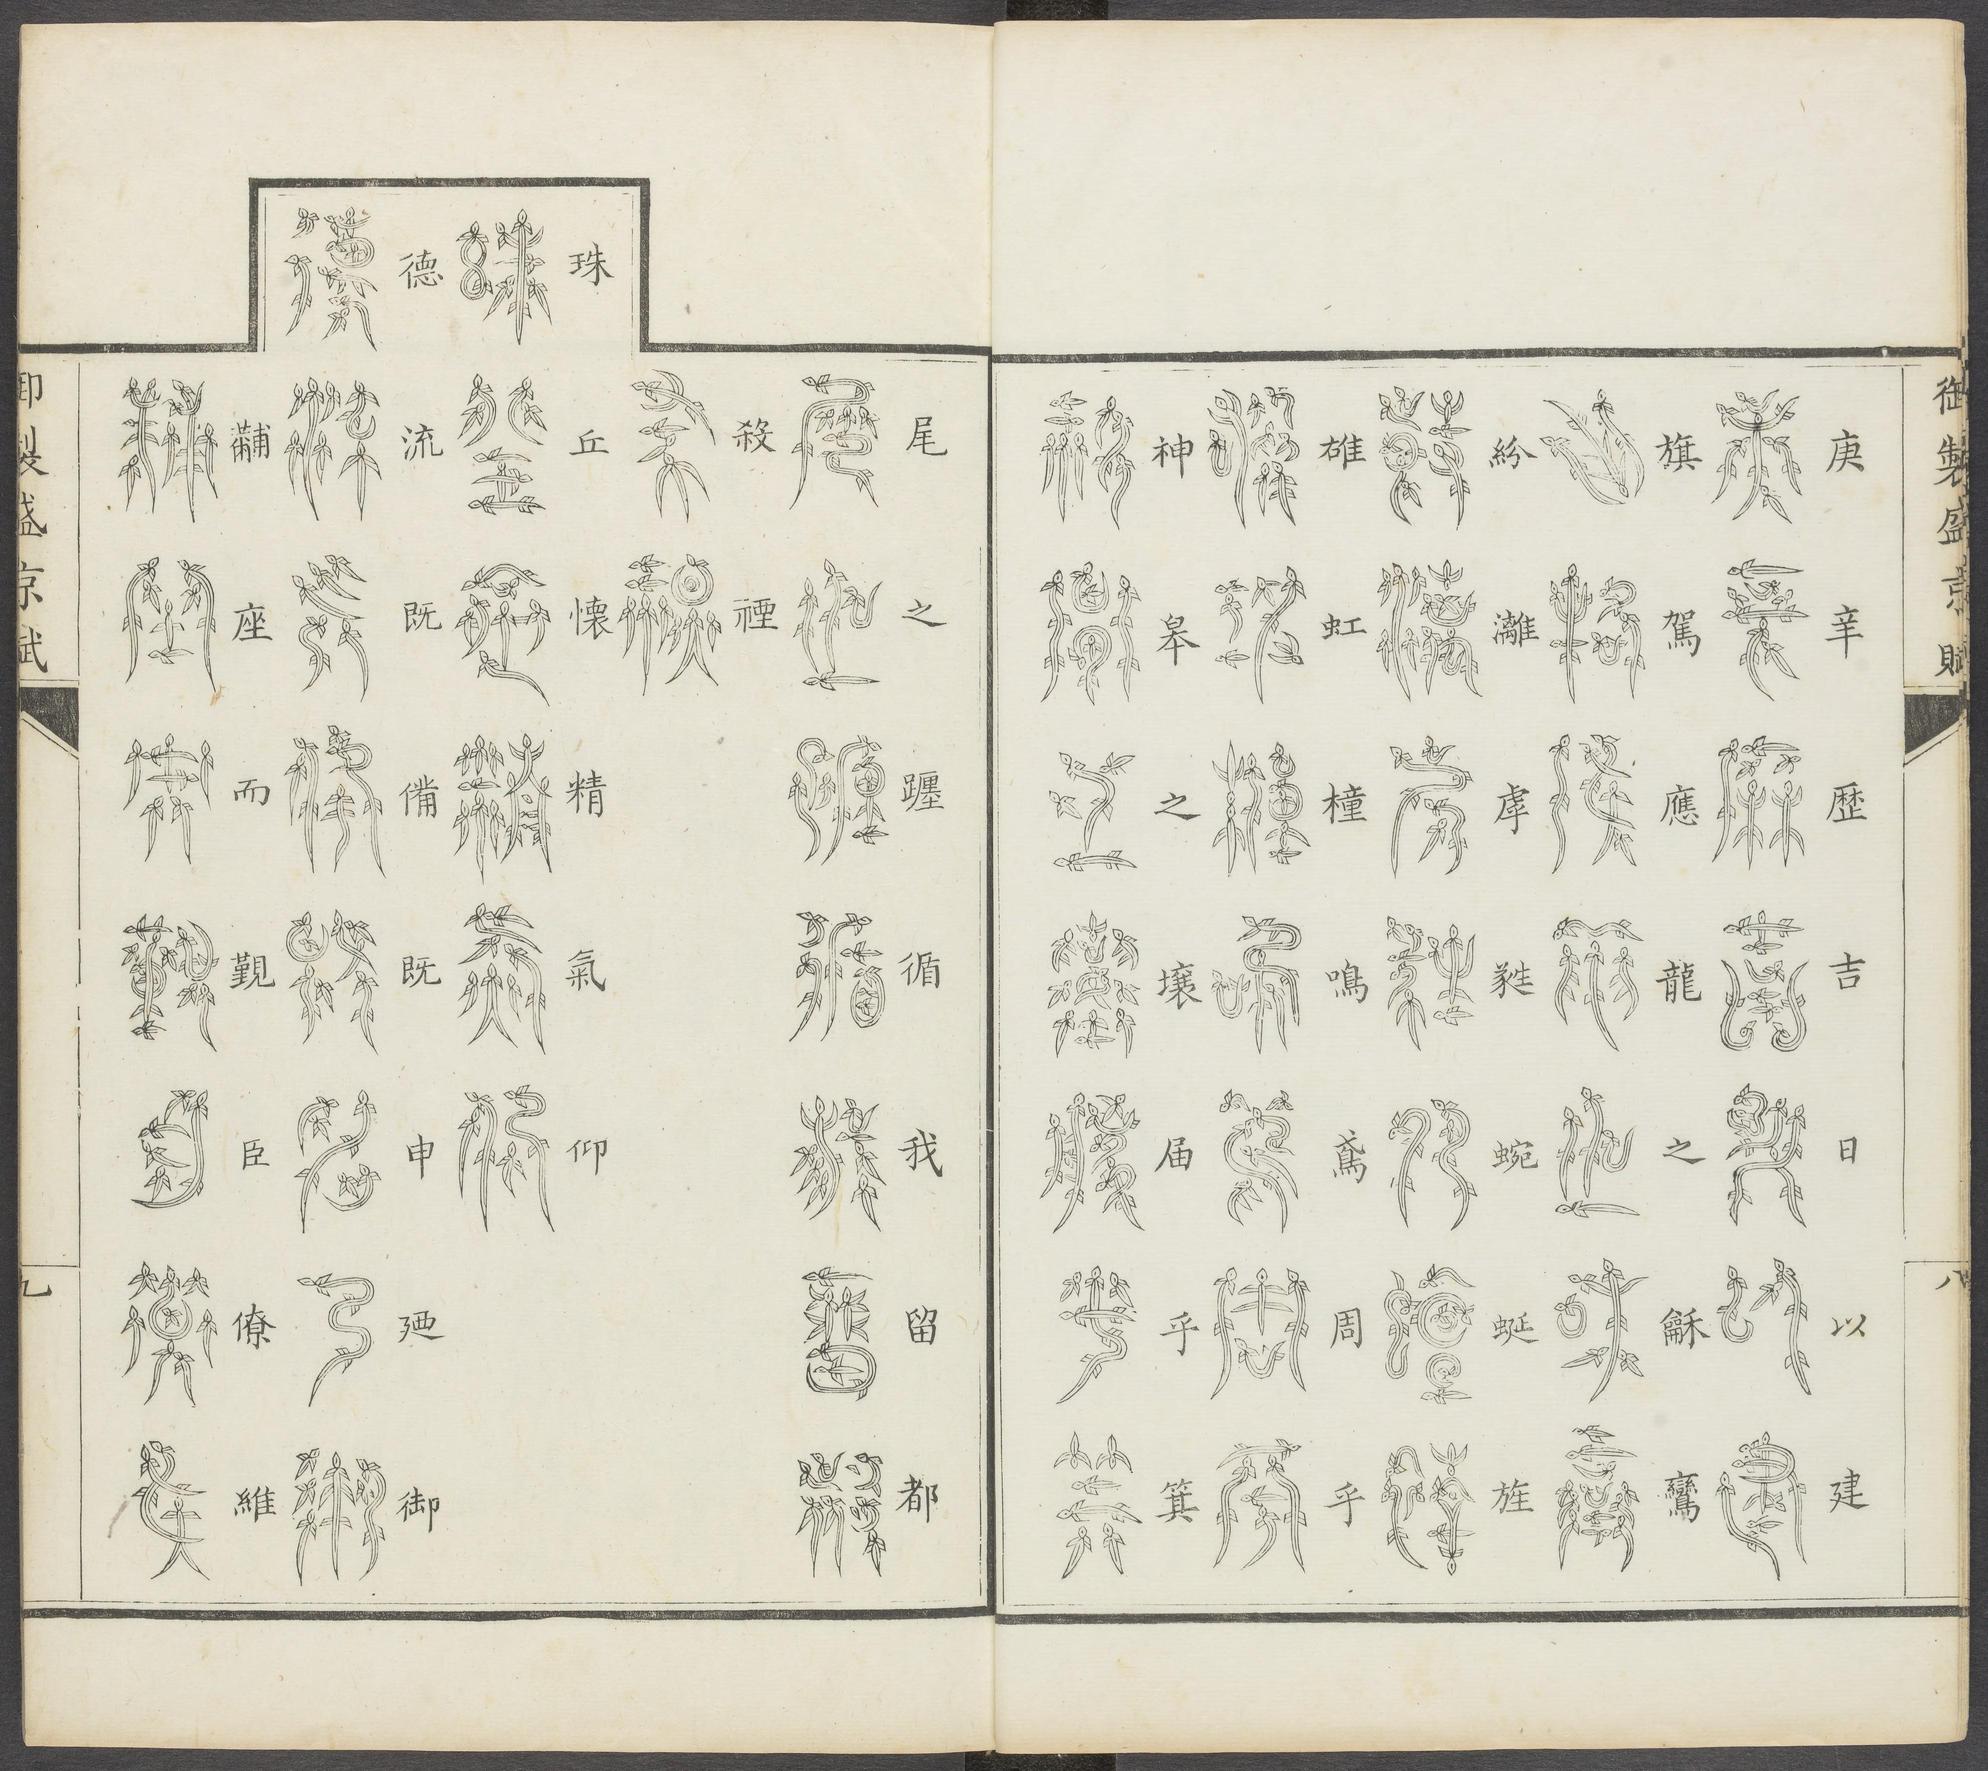 御製盛京賦
八
庚辛歷吉日以建
旗駕應龍之龢鸞
紛灕虖蕤蜿蜒旌
雄虹橦鳴鳶周乎
神皋之壤届乎箕
尾之躔循我留都
殺禋
珠丘懷精氣仰
德流既備既申廼御
黼座而覲臣僚維
御製盛京賦
九